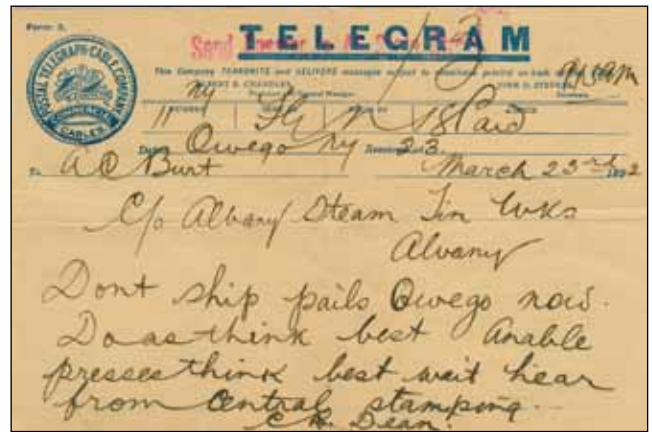 Form 2.
TELEGRAM
Send
POSTAL TELEGRAPH-CABLE COMPANY
COMMERCIAL CABLES
This Company TRANSMITS and DELIVERS messages subject to
ALBERT B. CHANDLER,
NUMBER
11 Ny 18 Paid
Owego Ny 23.
To A C Burt March 23rd 1892
C/o Albany Steam Tin Wks
Alvany
Dont ship pails Owego now.
Do as think best Anable
presses think best wait hear
from Central stamping.
Dean.